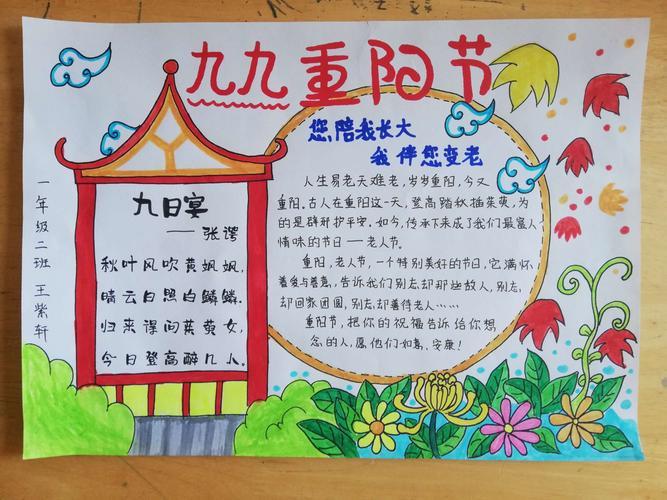 九九重阳节
您陪我长大
我伴您变老
一年级二班 王紫轩
九日宴
——张谔
秋叶风吹黄飒飒,
晴云日照白鳞鳞.
归来得问茱萸女,
今日登高醉几人.
人生易老天难老,岁岁重阳,今又
重阳.古人在重阳这一天,登高踏秋插茱萸,为
的是辟邪护平安.如今,传承下来成了我们最富人
情味的节日——老人节.
重阳,老人节,一个特别美好的节日,它满怀
着爱与善意,告诉我们别忘却那些故人,别忘
却回家团圆,别忘却善待老人……
重阳节,把你的祝福告诉给你想
念的人,愿他们如意、安康!